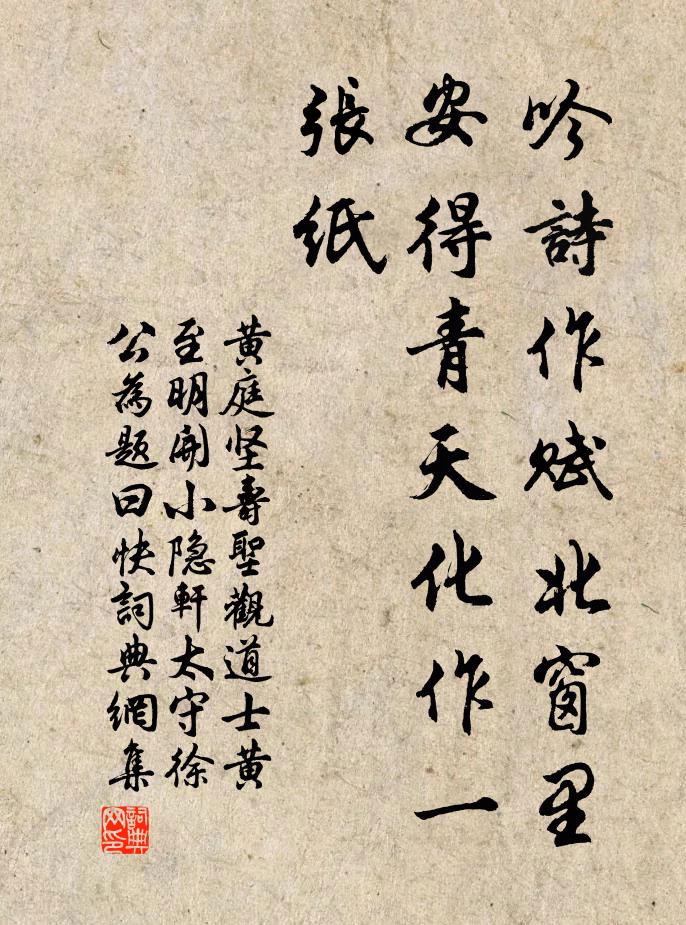 吟詩作賦北窗里
安得青天化作一
張紙
黄庭坚壽聖觀道士黄
至明開小隐軒太守徐
公為题曰快詞典網集
詞典网印